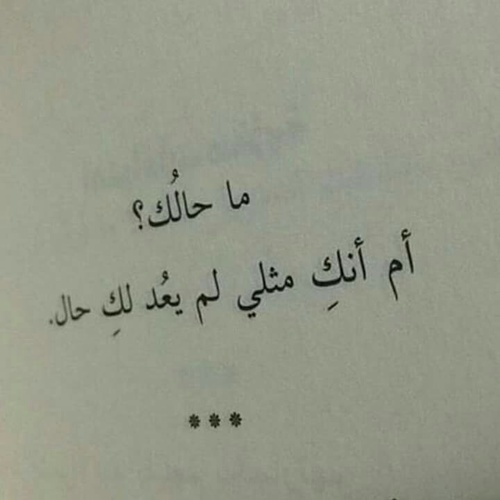 ما حالُك؟
أم أنكِ مثلي لم يعُد لكِ حال.
***